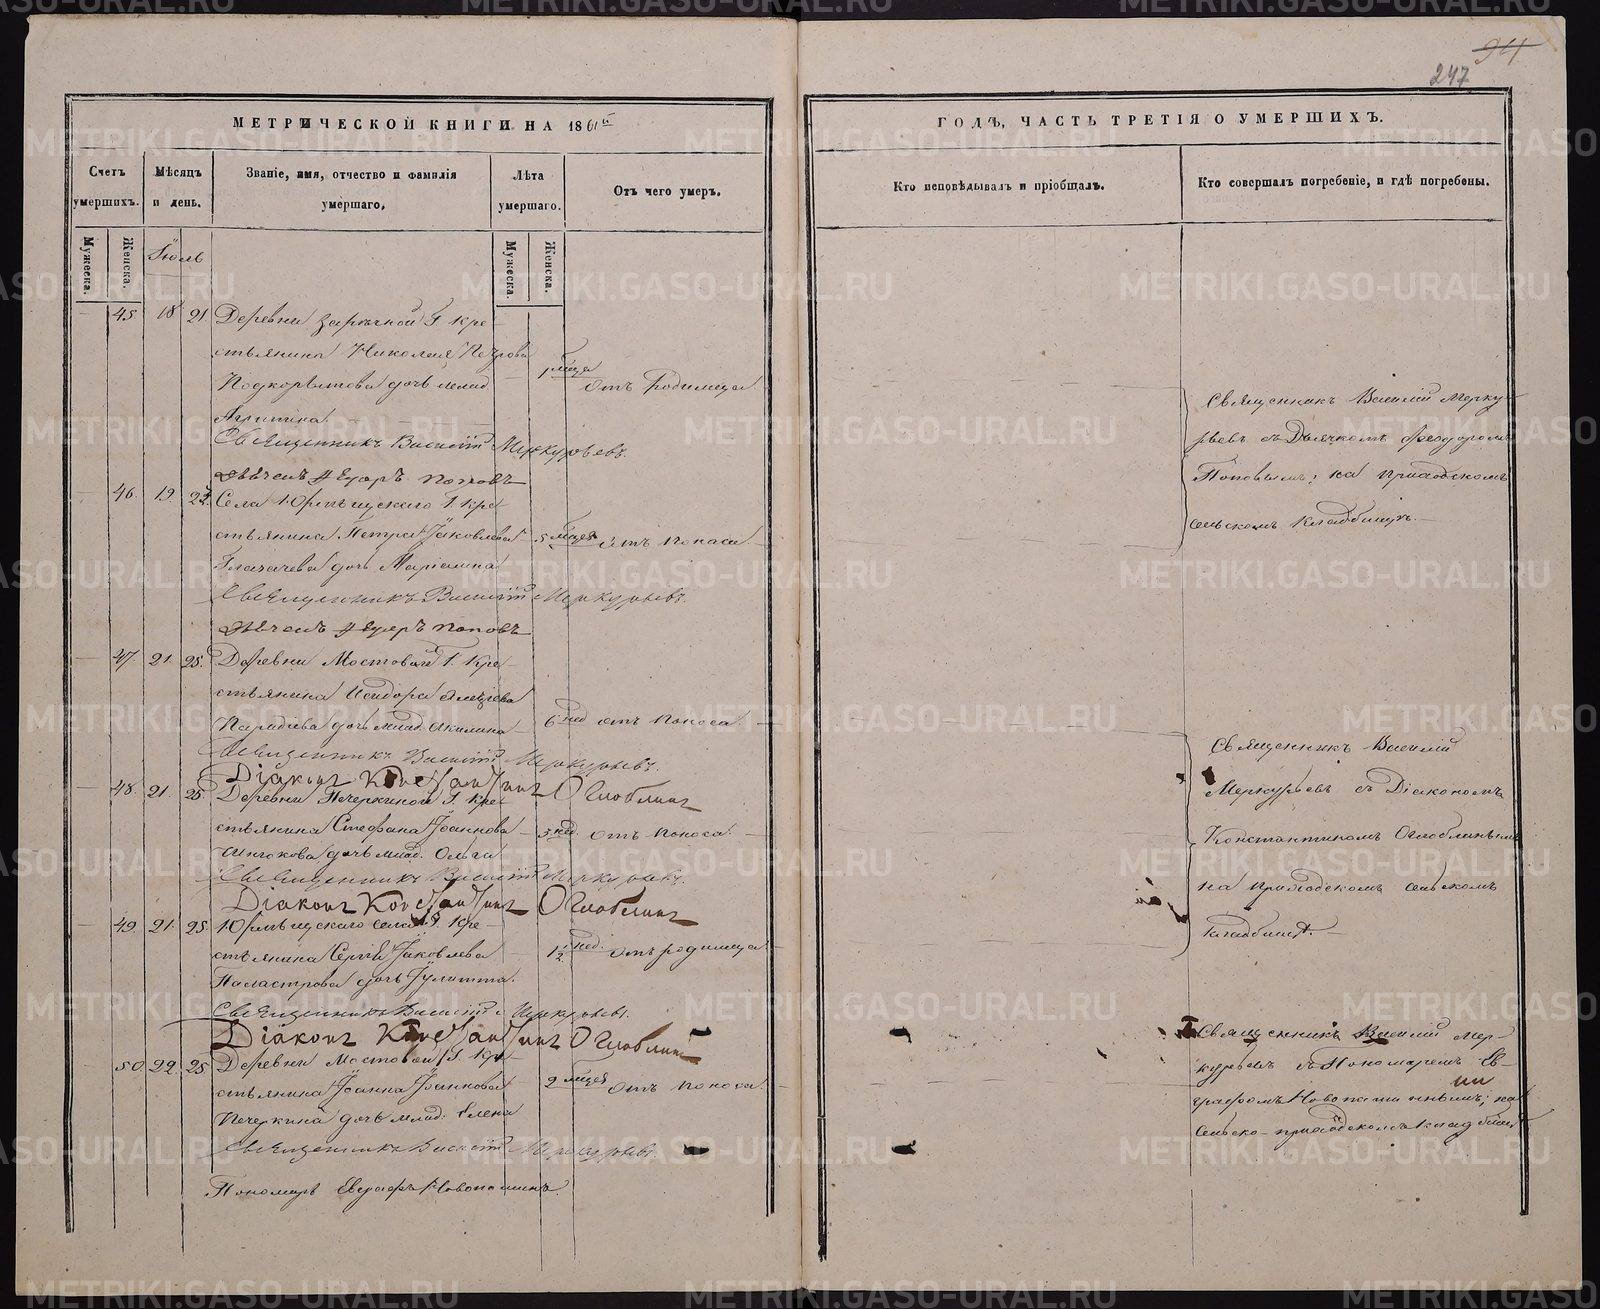 94
247
МЕТРИЧЕСКОЙ КНИГИ НА 1861й
Счетъ умершихъ.
Мѣсяцъ и день.
Званіе, имя, отчество и фамилія умершаго.
Лѣта умершаго.
Отъ чего умеръ.
Мужеска.
Женска.
Іюль
Мужеска.
Женска.
45. 18 21. Деревни Зарѣчной Г. кре-
стьянина Николая Петрова
Подкорытова дочь млад. 1 мѣсяца отъ родимца
Священникъ Василій Меркурьевъ.
Дьячекъ Ѳедоръ Поповъ
46. 19. 22. Села Юрмытскаго Г. кре-
стьянина Петра Іаковлева 5 мѣсяц. отъ поноса.
дочь Маріамна
Священникъ Василій Меркурьевъ.
Дьячекъ Ѳедоръ Поповъ
47. 21. 25. Деревни Мостовой Г. кре-
стьянина Исидора
дочь млад. Акилина 6 нед. отъ поноса.
Священникъ Василій Меркурьевъ.
Діаконъ Константинъ Оглоблинъ
48. 21. 25. Деревни Печеркиной Г. кре-
стьянина Стефана Іоаннова 3 нед. отъ поноса.
дочь млад. Ольга
Священникъ Василій Меркурьевъ.
Діаконъ Константинъ Оглоблинъ
49. 21. 25. Юрмытскаго села Г. кре-
стьянина Сергія Іаковлева 1½ нед. отъ родимца
дочь Іулитта.
Священникъ Василій Меркурьевъ.
Діаконъ Константинъ Оглоблинъ
50. 22. 25. Деревни Мостовой Г. кре-
стьянина Іоанна Іоаннова 2 мѣсяц. отъ поноса.
Печеркина дочь млад. Елена
Священникъ Василій Меркурьевъ.
Пономарь Евграфъ Новопашинъ
ГОДЪ, ЧАСТЬ ТРЕТІЯ О УМЕРШИХЪ.
Кто исповѣдывалъ и пріобщалъ.
Кто совершалъ погребеніе, и гдѣ погребены.
Священникъ Василій Мерку-
рьевъ съ Дьячкомъ Ѳеодоромъ
Поповымъ; на приходскомъ
сельскомъ кладбищѣ.
Священникъ Василій
Меркурьевъ съ Діакономъ
Константиномъ Оглоблинымъ
на приходскомъ сельскомъ
кладбищѣ.
Священникъ Василій Мер-
курьевъ съ Пономаремъ Ев-
графомъ Новопашинымъ; на
сельско-приходскомъ кладбищѣ
METRIKI.GASO-URAL.RU